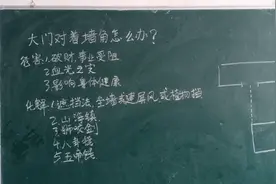 大门对着墙角怎么办?
危害:1.破财,事业受阻
2.血光之灾
3.影响身体健康
化解:1.遮挡法,全墙或建屏风,或植物挡
2.山海镇
3.狮咬剑
4.八卦镜
5.五帝钱